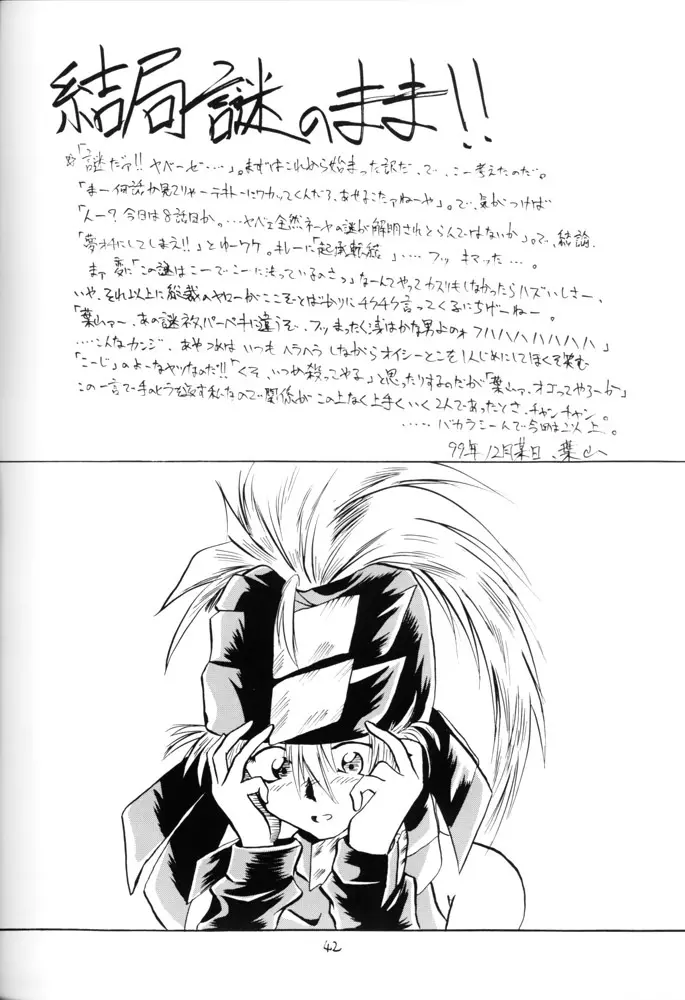 結局謎のまま!!
☆「謎だァ!! ヤベーぜ・・・・」。まずはこれから始まった訳だ、で、こー考えたのだ。
「まー何話か見てりゃーテキトーにワカッてくんだろ、あせるこたァねーや」。で、気がつけば
「んー? 今日は8話目か。・・・ヤベェ全然ネーヤの謎が解明されとらんではないか」。で、結論、
「夢オチにしてしまえ!!」とゆーワケ。キレーに「起承転結」・・・・フッ キマッた・・・。
まァ変に「この謎はこーでこーに決っているのさっ」なーんてやってカスリもしなかったらハズいしさー、
いや、それ以上に総裁のヤローがここぞとばかりにチクチク言ってくるにちげーねー。
「葉山ァー、あの謎ネタパーペキに違うぞ、フッまったく浅はかな男よのォフハハハハハハハ」
・・・・こんなカンジ。あやつめはいつもヘラヘラしながらオイシーとこを1人じめにしてほくそ笑む
「こーじ」のよーなヤツなのだ!!「くそ、いつか殺ってやる」と思ったりするのだが「葉山ァ、オゴってやろーか」
この一言で手のひらを返す私なので関係がこの上なく上手くいく2人であったとさ、チャンチャン。
・・・・・バカラシーんで今回は以上。
99年12月某日、葉山
42